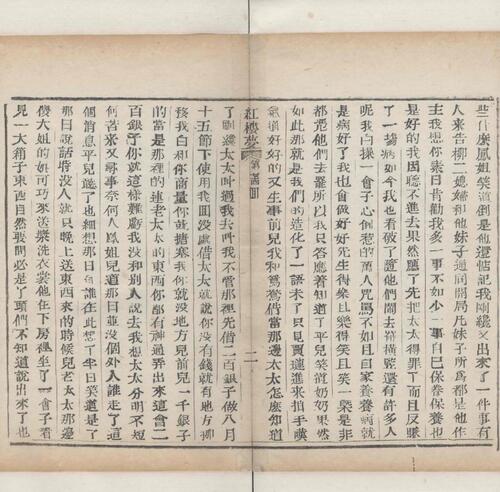 些什麼鳳姐笑道倒是他還惦記我剛纔又出來了一件事有
人來告柳二媳婦和他妹子通同開局凡妹子所爲都是他作
主我想你素日肯勸我多一事不如少一事自己保養保養也
是好的我因聽不進去果然應了先把太太得罪了而且反賺
了一場病如今我也看破了隨他們鬧去罷橫竪還有許多人
呢我白操一會子心倒惹的萬人咒罵不如且自家養養病就
是病好了我也會做好好先生得樂且樂得笑且笑一槩是非
都憑他們去罷所以我只答應着知道了平兒笑道奶奶果
如此那就是我們的造化了一語未了只見賈璉進來拍手嘆
氣道好好的又生事前兒我和鴛鴦借當那邊太太怎麼知道
紅樓夢 第 回
二
了剛纔太太叫過我去叫我不管那裡先借二百銀子做八月
十五節下使用我回沒處借太太就說你沒有錢就有地方挪
移我白和你商量你就搪塞我你就沒地方兒前兒一千銀子
的當是那裡的連老太太的東西你都有神通弄出來這會二
百銀子你就這樣難虧我沒和別人說去我想太太分明不短
何苦來又尋事奈何人鳳姐兒道那日並沒個外人誰走了這
個消息平兒聽了也細想那日有誰在此想了半日笑道是了
那日說話時沒人就只晚上送東西來的時候兒老太太那邊
傻大姐的娘可巧來送漿洗衣裳他在下房裡坐了一會子看
見一大箱子東西自然要問必是丫頭們不知道說出來了也